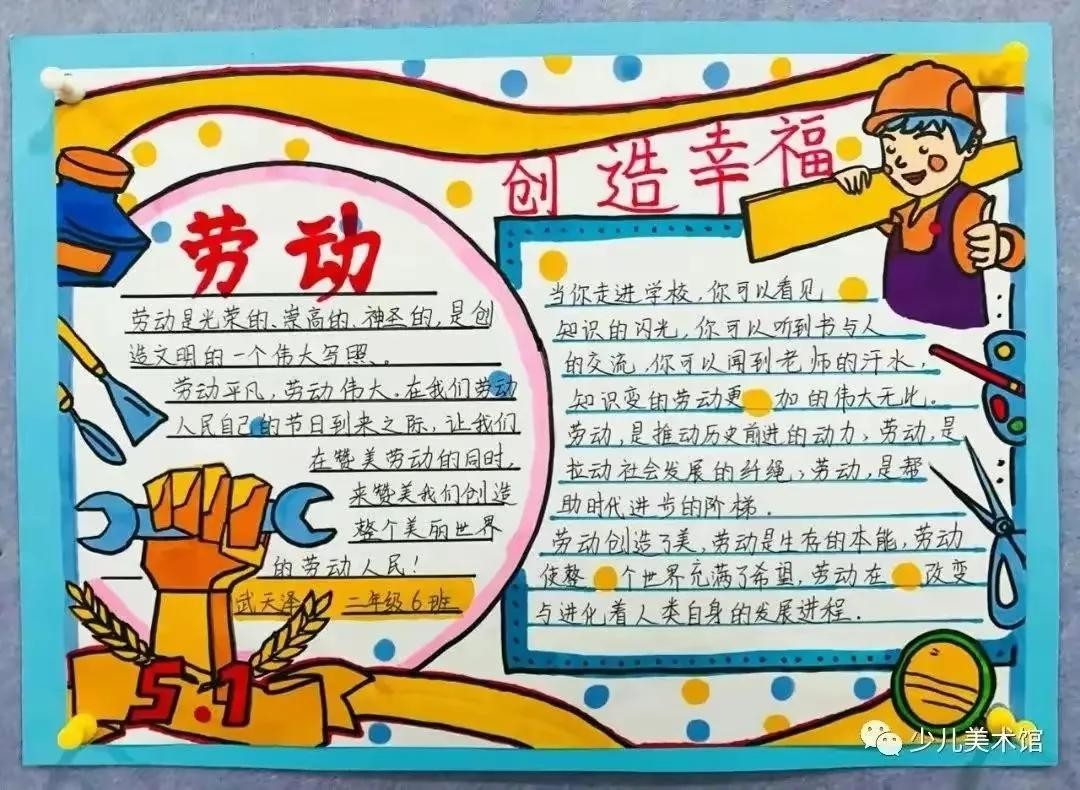 劳动
创造幸福
劳动是光荣的、崇高的、神圣的,是创
造文明的一个伟大写照、。
劳动平凡,劳动伟大。在我们劳动
人民自己的节日到来之际,让我们
在赞美劳动的同时,
来赞美我们创造
整个美丽世界
的劳动人民!
武天泽 二年级6班
5.1
当你走进学校,你可以看见
知识的闪光,你可以听到书与人
的交流,你可以闻到老师的汗水,
知识变的劳动更加的伟大无比。
劳动,是推动历史前进的动力;劳动,是
拉动社会发展的纤绳;劳动,是帮
助时代进步的阶梯.
劳动创造了美,劳动是生存的本能,劳动
使整个世界充满了希望,劳动在改变
与进化着人类自身的发展进程.
少儿美术馆